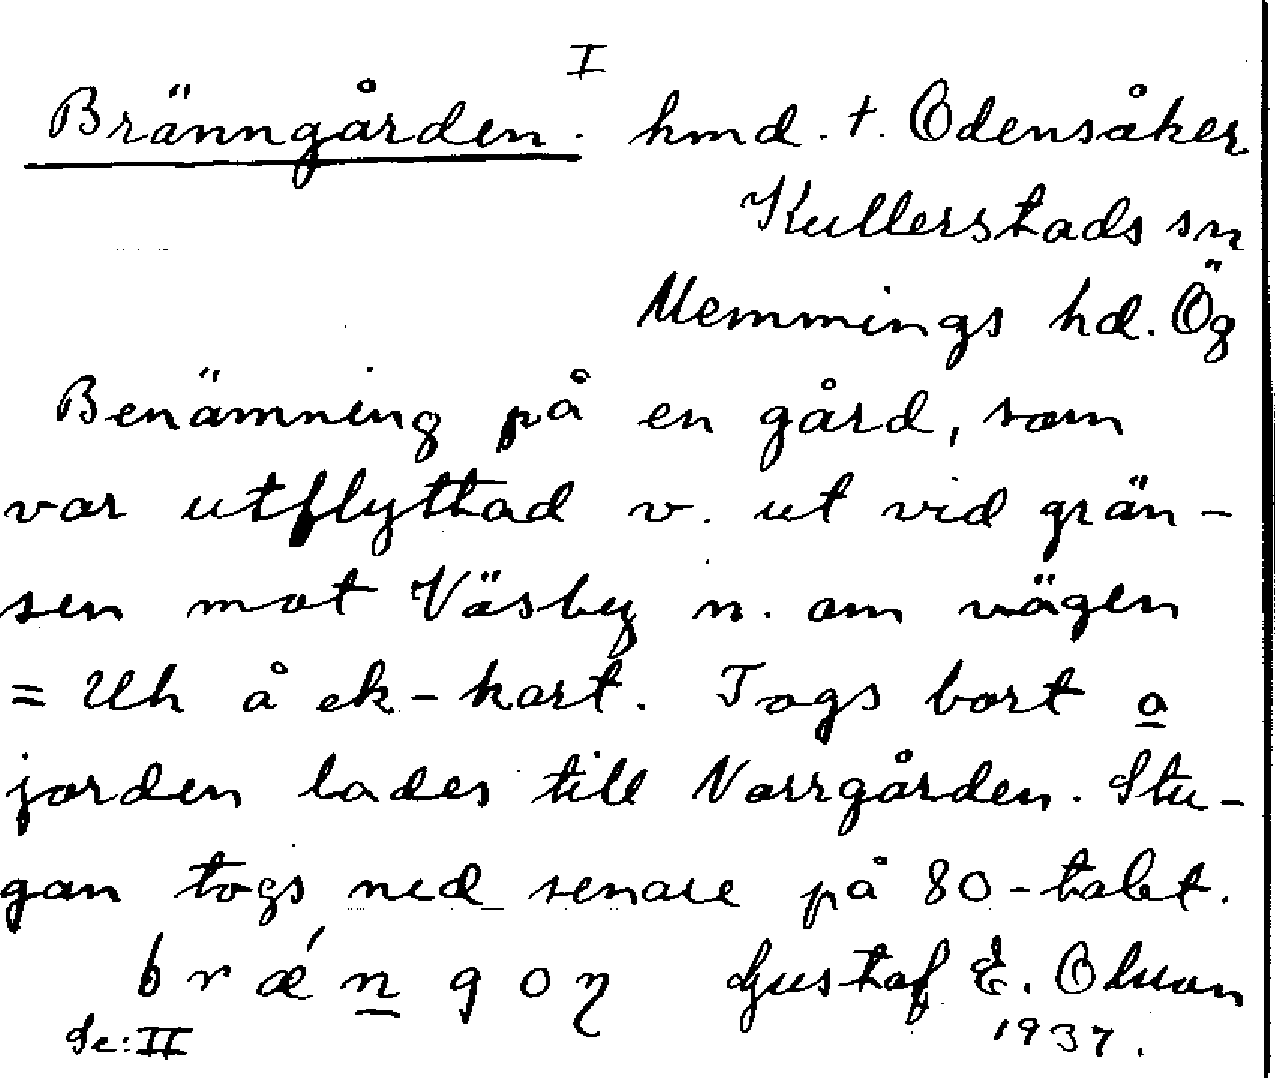 I
Bränngården. hmd. t. Odensåker
Kullerstads sn
Memmings hd. Ög
Benämning på en gård, som
var utflyttad v. ut vid grän-
sen mot Väsby n. om vägen
= Uh å ek-kart. Togs bort o
jorden lades till Norrgården. Stu-
gan togs ned senare på 80-talet.
Gustaf E. Olson
Se: II 1937.